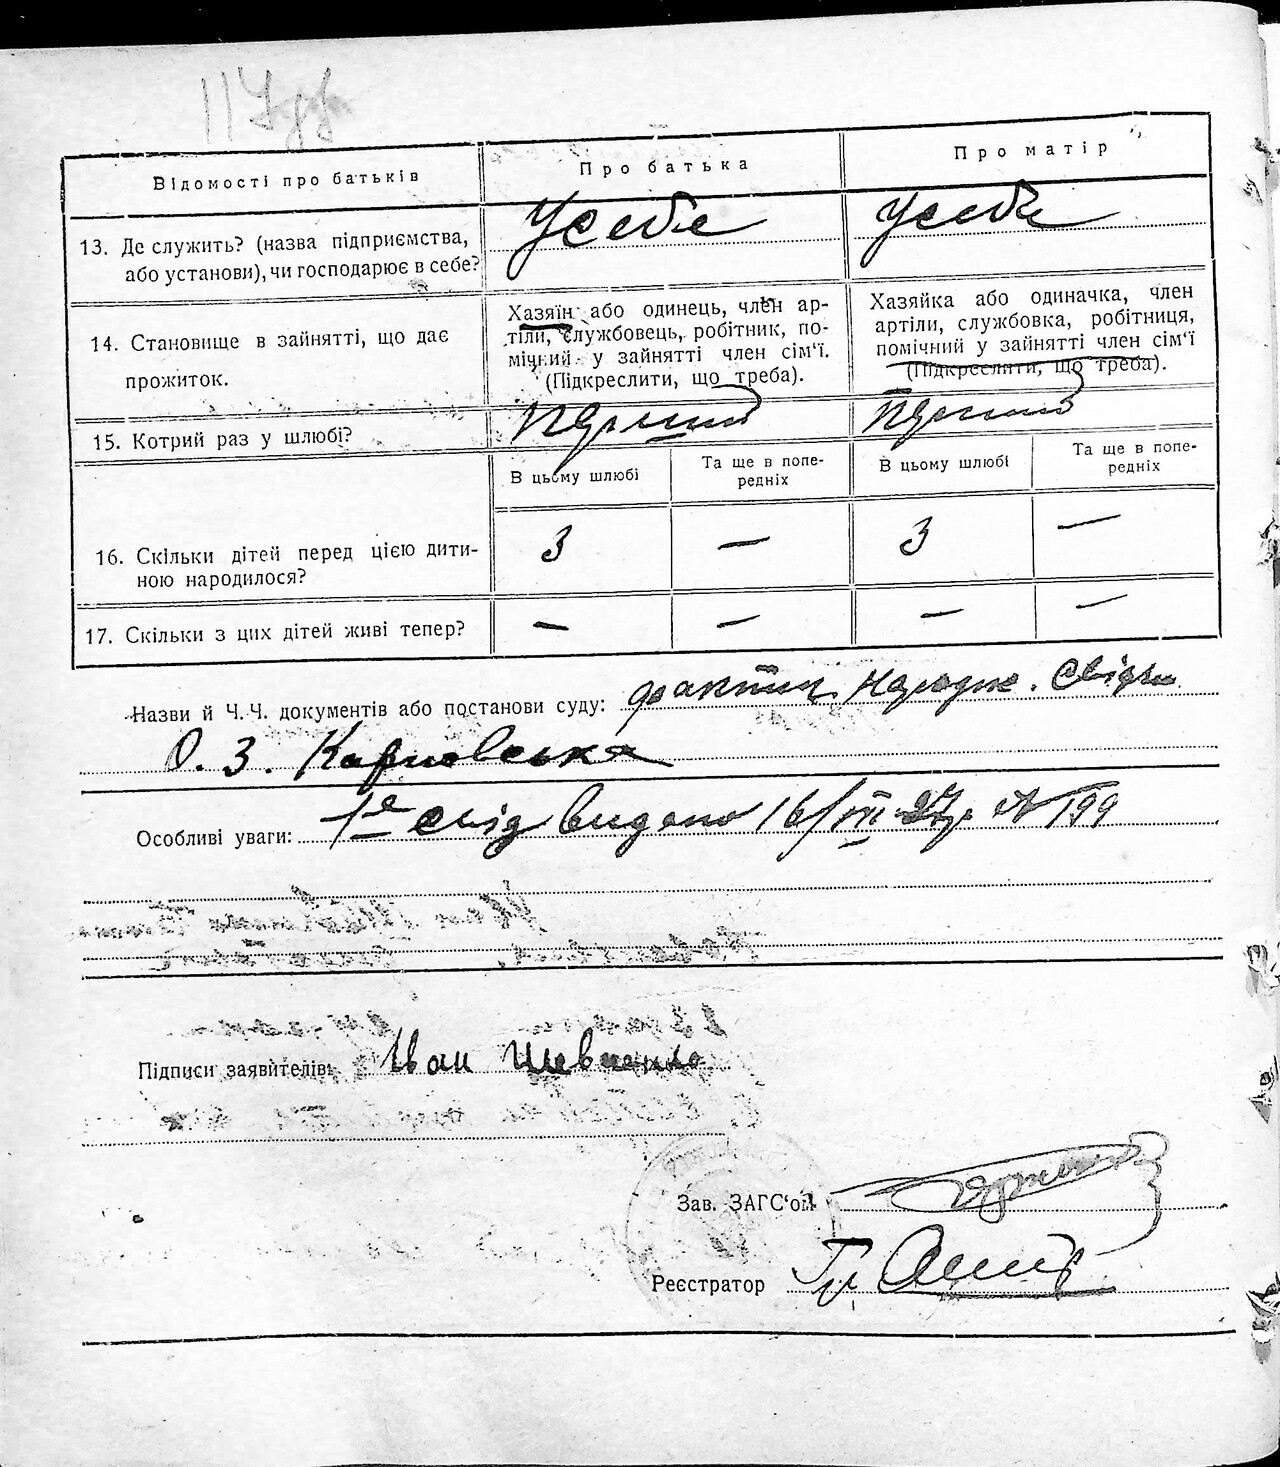 Відомості про батьків
Про батька
Про матір
13. Де служить? (назва підприємства,
або установи), чи господарює в себе?
У себе
У себе
14. Становище в зайнятті, що дає
прожиток.
Хазяїн або одинець, член ар-
тіли, службовець, робітник, по-
мічний у зайнятті член сім‘ї.
(Підкреслити, що треба).
Хазяйка або одиначка, член
артіли, службовка, робітниця,
помічний у зайнятті член сім‘ї
(Підкреслити, що треба).
15. Котрий раз у шлюбі?
Перший
Перший
В цьому шлюбі
Та ще в попе-
редніх
В цьому шлюбі
Та ще в попе-
редніх
16. Скільки дітей перед цією дити-
ною народилося?
3
—
3
—
17. Скільки з цих дітей живі тепер?
—
—
—
—
Назви й Ч.Ч. документів або постанови суду: народж. Свідч
О. З.
Особливі уваги: свід видано 16/VII 27р № 199
Підписи заявителів: Іван Шевченко
Зав. ЗАГС‘ом
Реєстратор